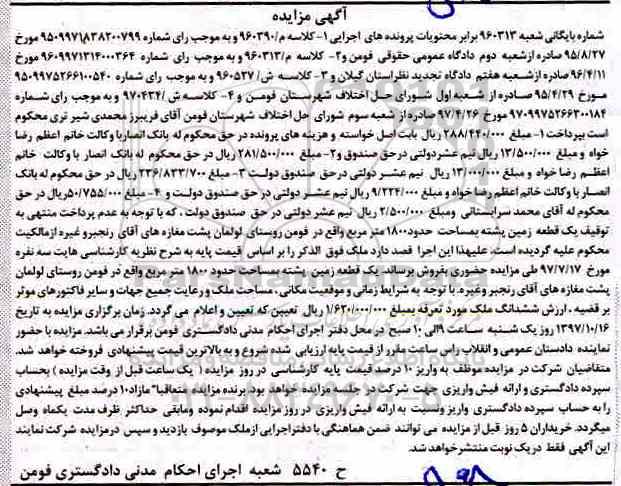 آگهی مزایده
شماره بایگانی شعبه ۹۶۰۳۱۳ برابر محتویات پرونده های اجرایی ۱-کلاسه م/۹۶۰۳۹۰ و به موجب رای شماره ۹۵۰۹۹۷۱۸۳۸۲۰۰۷۹۹ مورخ
۹۵/۸/۲۷ صادره ازشعبه دوم دادگاه عمومی حقوقی فومن و۲- کلاسه م/۹۶۰۳۱۳ و به موجب رای شماره ۹۶۰۹۹۷۱۳۱۴۰۰۰۳۶۴ مورخ
۹۶/۴/۱۱ صادره ازشعبه هفتم دادگاه تجدید نظراستان گیلان و ۳- کلاسه ش/۹۶۰۵۳۷ و به موجب رای شماره ۹۵۰۹۹۷۵۲۶۶۱۰۰۵۴۰
مورخ ۹۵/۴/۲۹ صادره از شعبه اول شورای حل اختلاف شهرستان فومن و ۴- کلاسه ش/۹۷۰۴۳۴ و به موجب رای شماره
۹۷۰۹۹۷۵۲۶۶۳۰۰۱۸۴ مورخ ۹۷/۴/۲۶ صادره از شعبه سوم شورای حل اختلاف شهرستان فومن آقای فریبرز محمدی شیر تری محکوم
است بپرداخت ۱- مبلغ ۲۸۸/۴۴۰/۰۰۰ ریال بابت اصل خواسته و هزینه های پرونده در حق محکوم له بانک انصاربا وکالت خانم اعظم رضا
خواه و مبلغ ۱۳/۵۰۰/۰۰۰ ریال نیم عشردولتی درحق صندوق و۲- مبلغ ۲۸۱/۵۰۰/۰۰۰ ریال در حق محکوم له بانک انصار با وکالت خانم
اعظم رضا خواه و مبلغ ۱۳/۰۰۰/۰۰۰ ریال نیم عشر دولتی درحق صندوق دولت ۳- مبلغ ۲۳۶/۸۳۳/۷۰۰ ریال در حق محکوم له بانک
انصاربا وکالت خانم اعظم رضا خواه و مبلغ ۹/۲۲۴/۰۰۰ ریال نیم عشر دولتی در حق صندوق دولت و ۴- مبلغ ۵۰/۷۵۵/۰۰۰ریال در حق
محکوم له آقای محمد سرابستانی ومبلغ ۲/۵۰۰/۰۰۰ ریال نیم عشر دولتی در حق صندوق دولت ، که با توجه به عدم پرداخت منتهی به
توقیف یک قطعه زمین پشته بمساحت حدود۱۸۰۰ متر مربع واقع در فومن روستای لولمان پشت مغازه های آقای رنجبرو غیره ازمالکیت
محکوم علیه گردیده است. علیهذا این اجرا قصد دارد ملک فوق الذکر را بر اساس قیمت پایه به شرح نظریه کارشناسی هایت سه نفره
مورخ ۹۷/۷/۱۷ طی مزایده حضوری بفروش برساند. یک قطعه زمین پشته بمساحت حدود ۱۸۰۰ متر مربع واقع در فومن روستای لولمان
پشت مغازه های آقای رنجبر وغیره. با توجه به شرایط زمانی و موقعیت مکانی، مساحت ملک و رعایت جمیع جهات و سایر فاکتورهای موثر
بر قضیه . ارزش ششدانگ ملک مورد تعرفه بمبلغ ۱/۶۳۰/۰۰۰/۰۰۰ ریال تعیین که تعیین و اعلام می گردد. زمان برگزاری مزایده به تاریخ
۱۳۹۷/۱۰/۱۶ روز یک شنبه ساعت ۹الی ۱۰ صبح در محل دفتر اجرای احکام مدنی دادگستری فومن برقرار می باشد. مزایده با حضور
نماینده دادستان عمومی و انقلاب راس ساعت مقرر از قیمت پایه ارزیابی شده شروع و به بالاترین قیمت پیشنهادی فروخته خواهد شد.
متقاضیان شرکت در مزایده موظف به واریز ۱۰ درصد قیمت پایه کارشناسی در روز مزایده ( یک ساعت قبل از وقت مزایده ) بحساب
سپرده دادگستری و ارائه فیش واریزی جهت شرکت در جلسه مزایده خواهد بود. برنده مزایده متعاقبا" مازاد۱۰ درصد مبلغ پیشنهادی
را به حساب سپرده دادگستری واریز ونسبت به ارائه فیش واریزی در روز مزایده اقدام نموده ومابقی حداکثر ظرف مدت یکماه وصل
میگردد. خریداران ۵ روز قبل از مزایده می توانند ضمن هماهنگی با دفتراجرایی ازملک موصوف بازدید و سپس درمزایده شرکت نمایند
این آگهی فقط دریک نوبت منتشرخواهد شد.
ح ۵۵۴۰ شعبه اجرای احکام مدنی دادگستری فومن